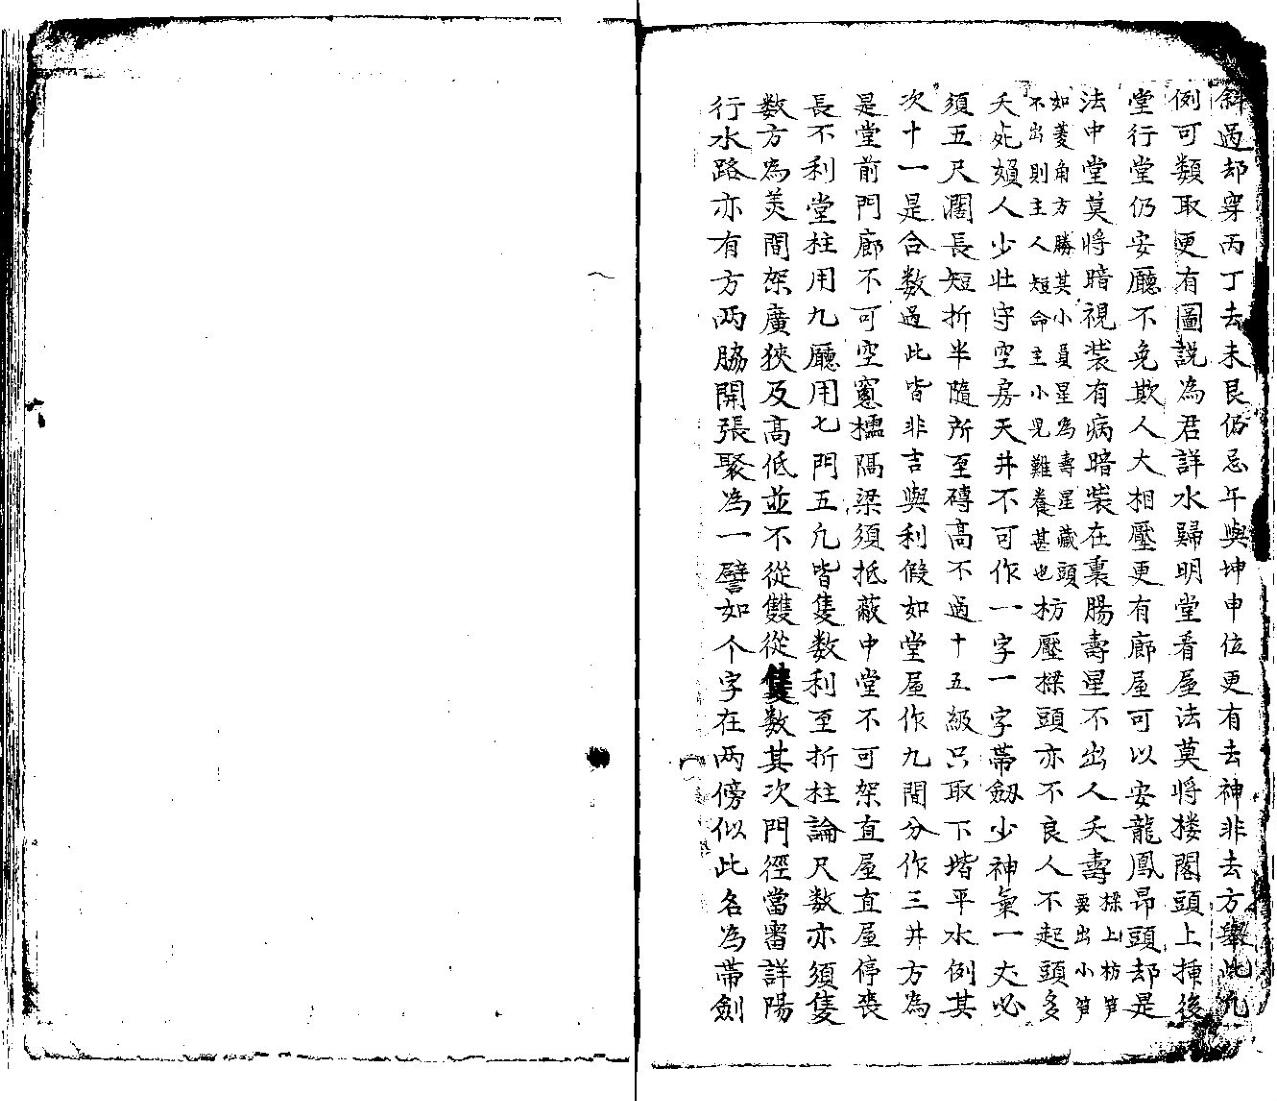 斜過却穿丙丁去未艮仍忌午與坤申位更有去神非去方舉此凡
例可類取更有圖説為君詳水歸明堂看屋法莫將楼閣頭上揷後
堂行堂仍安廳不免欺人大相壓更有廊屋可以安龍鳳昂頭却是
法中堂莫將暗視裝有病暗裝在裏腸壽星不出人夭壽
橑上枋笋
要出小笋
如菱角方勝其小員星為壽星藏頭
不出則主人短命主小児難養甚也
枋壓橑頭亦不良人不起頭多
夭死賴人少壯守空房天井不可作一字一字帶劔少神氣一丈必
須五尺濶長短折半隨所至磚高不過十五級只取下堦平水例其
次十一是合数過此皆非吉與利假如堂屋作九間分作三井方為
是堂前門廊不可空窻槅隔梁須抵蔽中堂不可架直屋直屋停喪
長不利堂柱用九廳用七門五凢皆隻数利至折柱論尺数亦須隻
数方為美間架廣狹及髙低並不從雙從隻数其次門徑當審詳陽
行水路亦有方两脇開張聚為一譬如个字在两傍似此名為帶劍